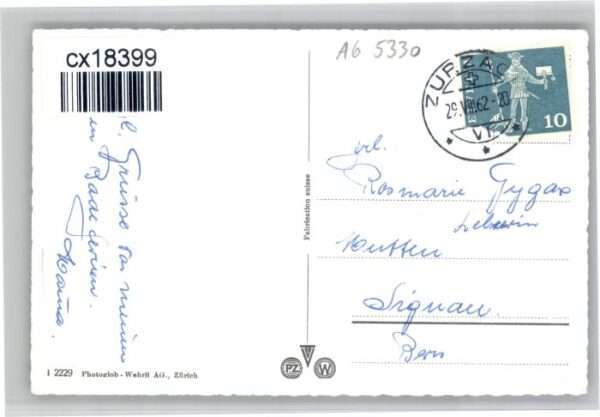 cx18399
AG 5330
ZURZACH
29.VIII.62-20
10
HELVETIA
l. Grüsse von meinen
Badeferien.
Hanna.
Frl.
Rosmarie Gygax
Lehrerin
Mutten
Signau
Bern
Fabrication suisse
I 2229 Photoglob-Wehrli AG., Zürich
PZ W